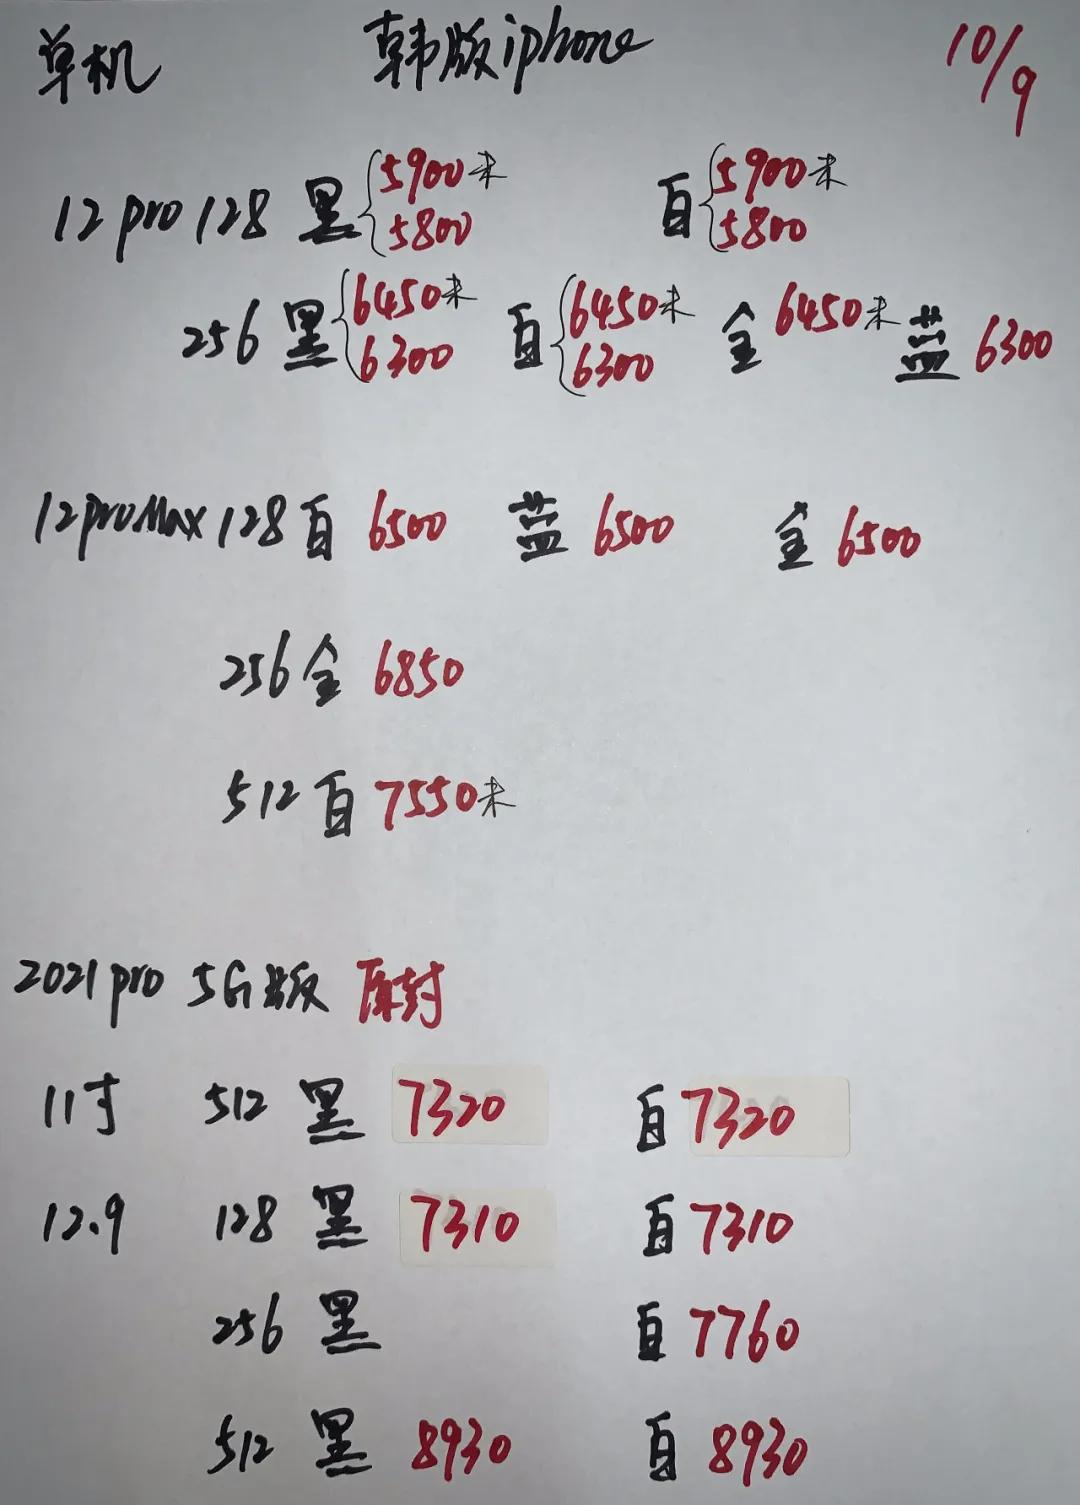 单机 韩版iphone 10/9
12pro 128 黑 5900未 白 5900未
5800 5800
256 黑 6450未 白 6450未 金 6450未 蓝 6300
6300 6300
12proMax 128 白 6500 蓝 6500 金 6500
256 金 6850
512 白 7550未
2021 pro 5G版 原封
11寸 512 黑 7320 白 7320
12.9 128 黑 7310 白 7310
256 黑 白 7760
512 黑 8930 白 8930